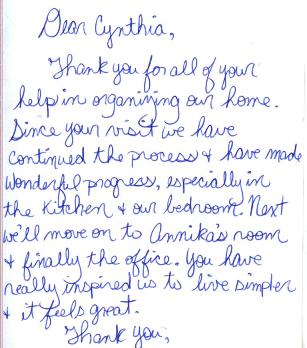 Dear Cynthia,
Thank you for all of your
help in organizing our home.
Since your visit we have
continued the process & have made
wonderful progress, especially in
the kitchen & our bedroom. Next
we'll move on to Annika's room
& finally the office. You have
really inspired us to live simpler
& it feels great.
Thank you,